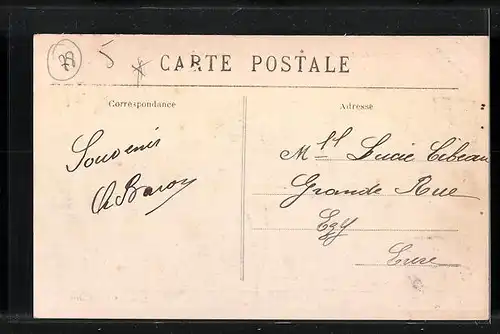 78 5
* CARTE POSTALE
Correspondance
Adresse
Souvenir
Mlle Lucie Cibeau
Grande Rue
Ezy
Eure